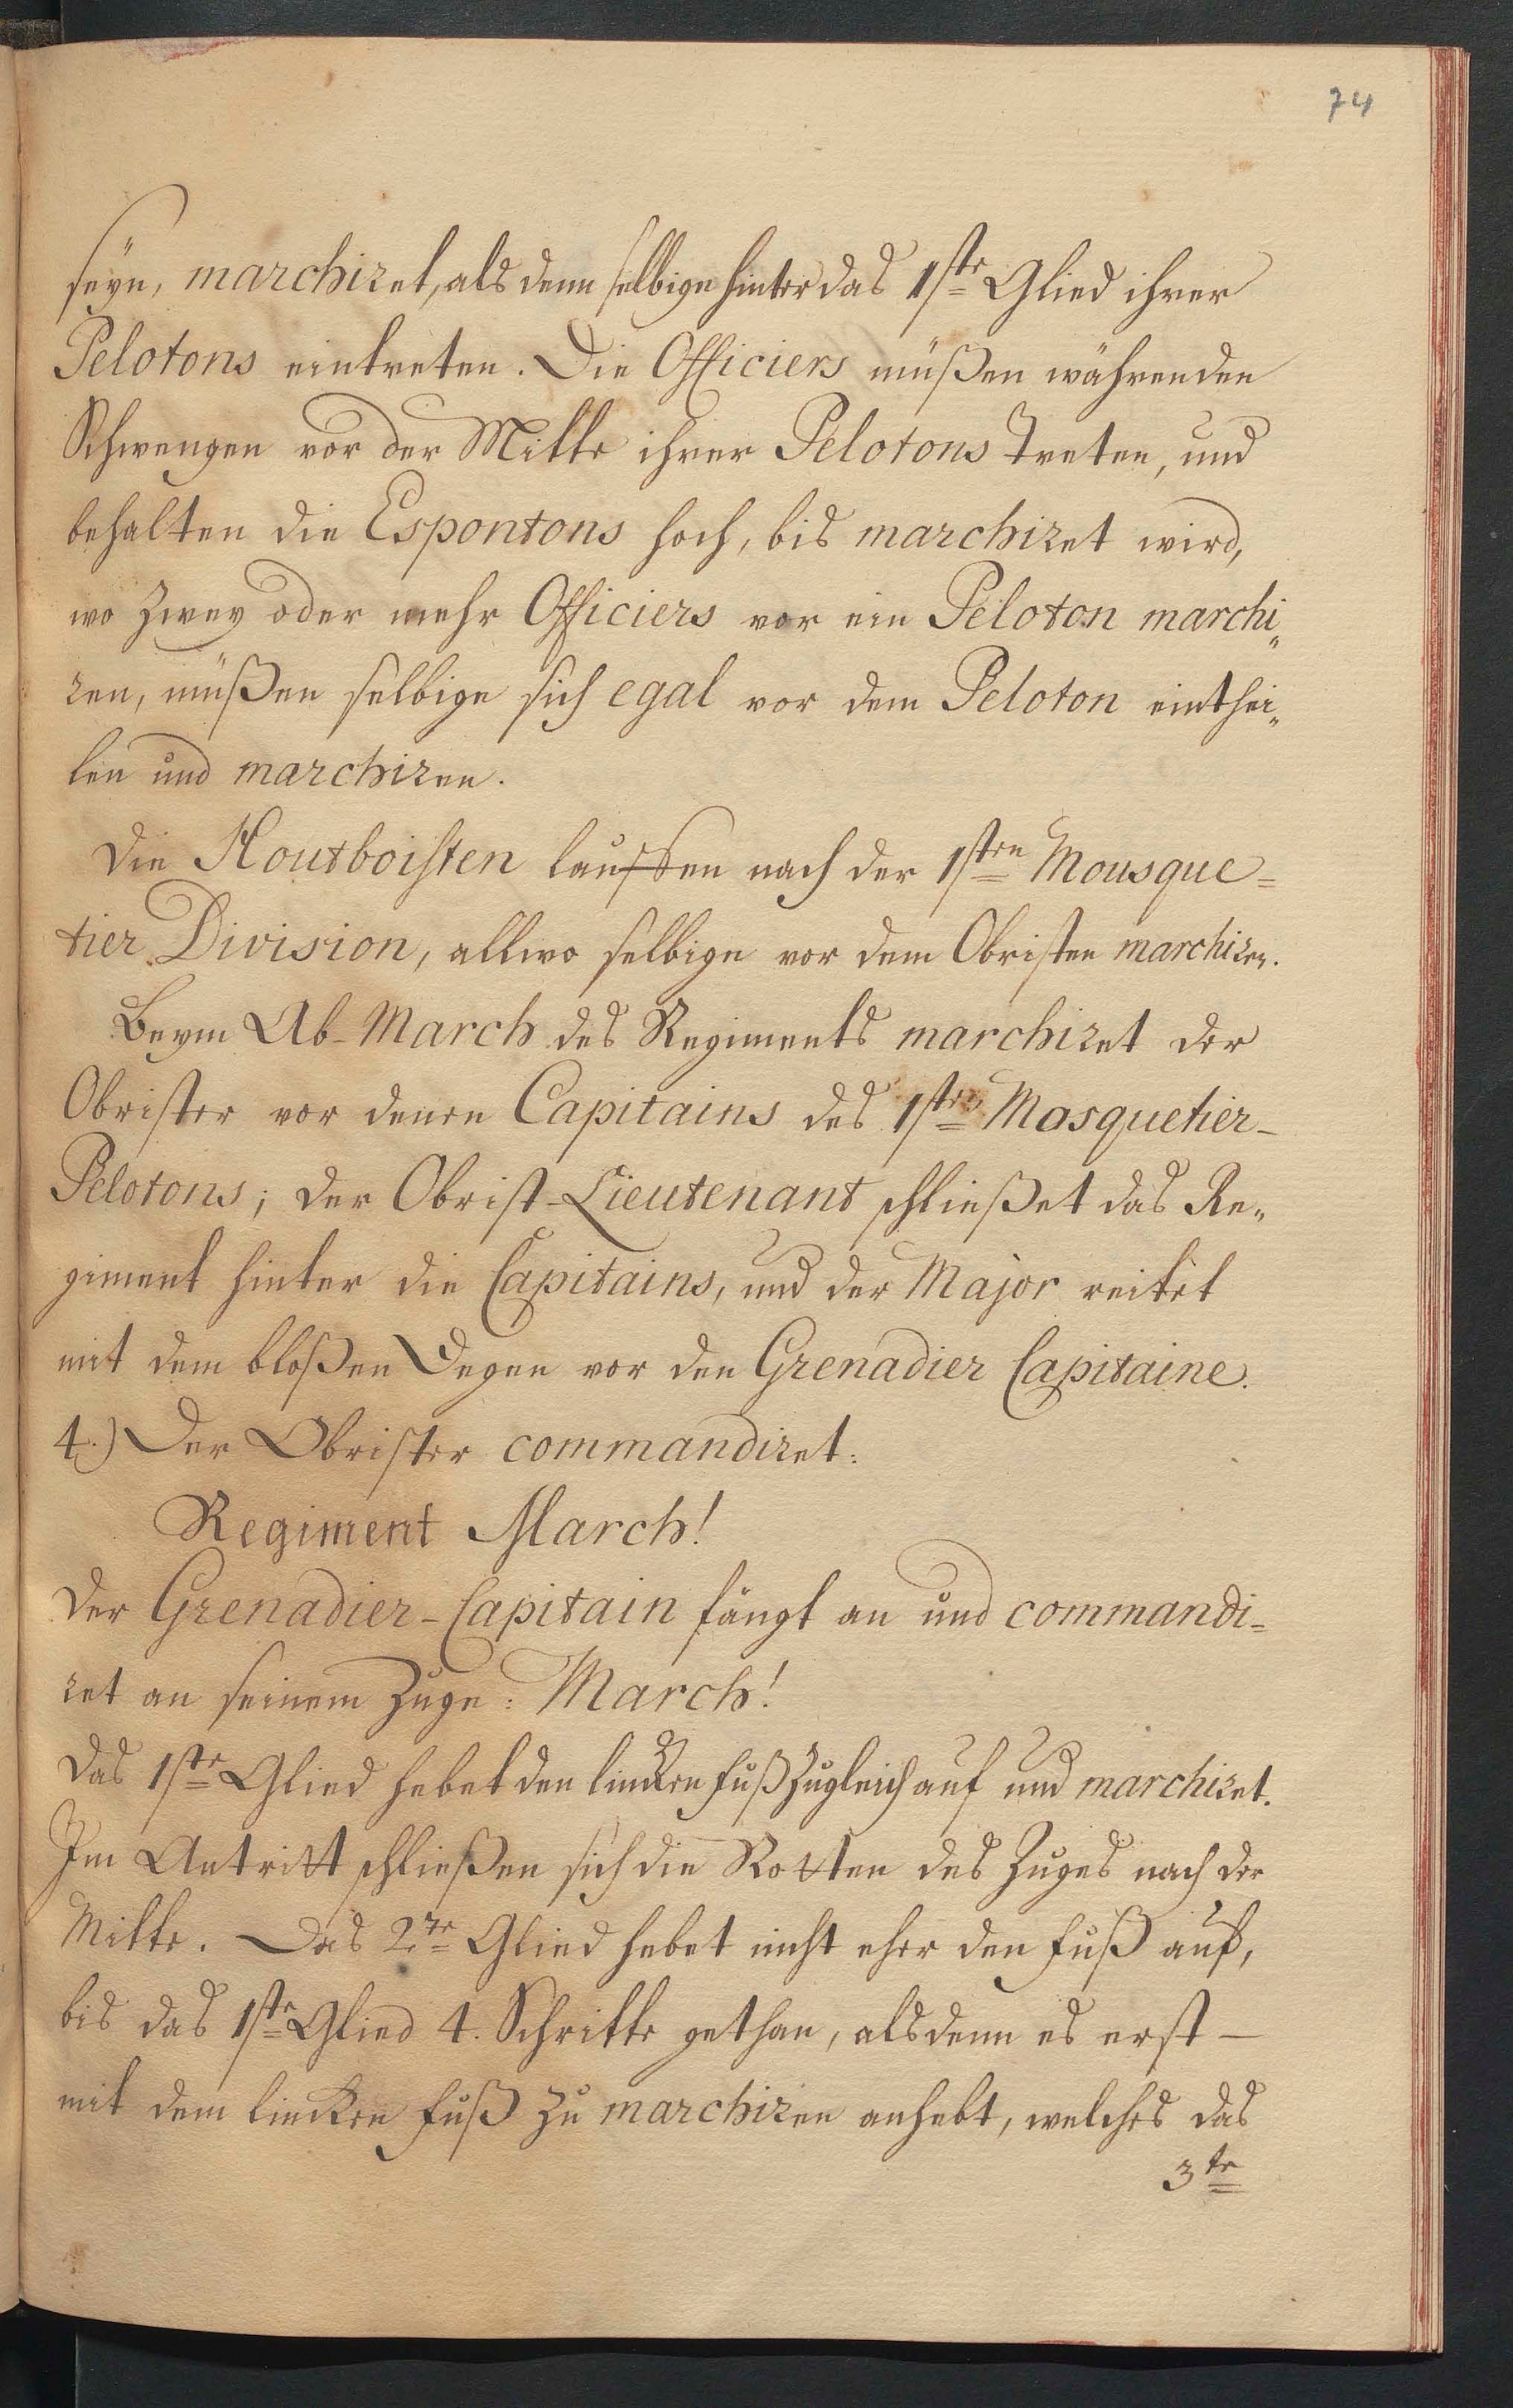 74
seyn, marchiret, als denn selbige hinter das 1ste Glied ihrer
Pelotons eintreten. Die Officiers müßen währenden
Schwengen vor der Mitte ihrer Pelotons treten, und
behalten die Espontons hoch, bis marchiret wird,
wo zwey oder mehr Officiers vor ein Peloton marchi„
ren, müßen selbige sich egal vor dem Peloton einthei„
len und marchiren.
Die Houtboisten lauffen nach der 1sten Mousque=
tier Division, allwo selbige vor dem Obristen marchiren.
Beym Ab-March des Regiments marchiret der
Obrister vor denen Capitains des 1sten Mosquetier-
Pelotons; der Obrist-Lieutenant schließet das Re„
giment hinter die Capitains, und der Major reitet
mit dem bloßen Degen vor den Grenadier Capitaine.
4.) Der Obrister commandiret:
Regiment March!
Der Grenadier-Capitain fängt an und commandi=
ret an seinem Zuge: March!
Das 1ste Glied hebet den lincken Fuß zugleich auf und marchiret.
Im Antritt schließen sich die Rotten des Zuges nach der
Mitte. Das 2te Glied hebet nicht eher den Fuß auf,
bis das 1ste Glied 4. Schritte gethan, alsdenn es erst —
mit dem lincken Fuß zu marchiren anhebt, welches das
3te